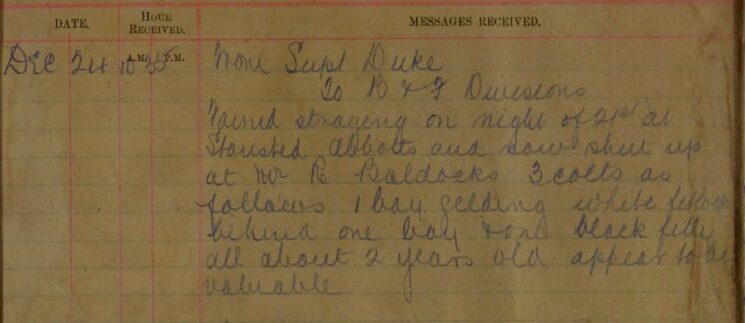 DATE. HOUR RECEIVED. MESSAGES RECEIVED.
A.M. P.M.
Dec 24 10 35 From Supt Duke
To B & F Divisions
Found straying on night of 21st at
Stansted Abbotts and now shut up
at Mr R Baldocks 3 colts as
follows 1 bay gelding white fetlock
behind one bay & one black filly
all about 2 years old appear to be
valuable